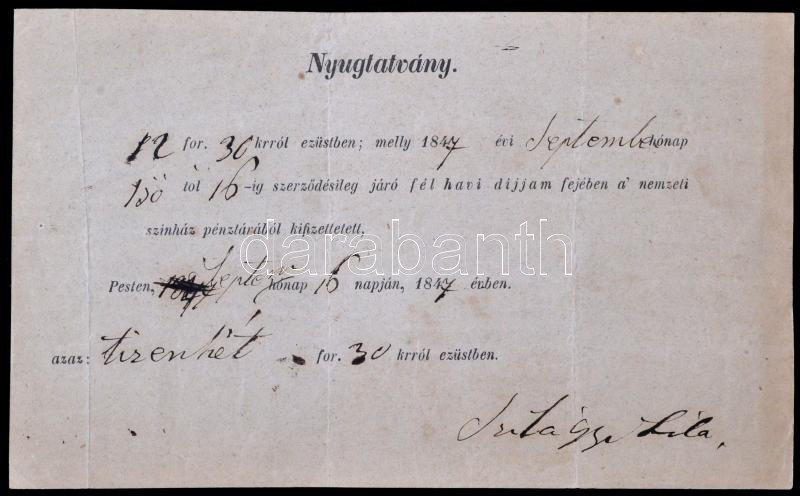 Nyugtatvány.
for. 30 krról ezüstben; melly 1847 évi September hónap
1ső tol 16-ig szerződésileg járó fél havi dijjam fejében a' nemzeti
szinház pénztárából kifizettetett,
darabanth
Pesten, Septezr hónap 16 napján, 1847 évben.
azaz: tizenhét for. 30 krról ezüstben.
Szilágyi Lila,